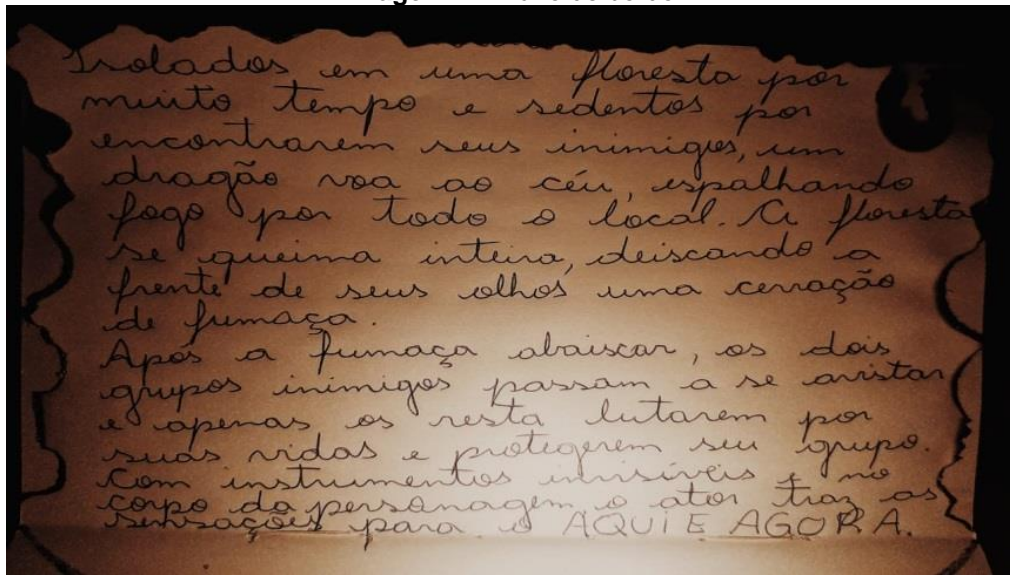 Isolados em uma floresta por
muito tempo e sedentos por
encontrarem seus inimigos, um
dragão voa ao céu, espalhando
fogo por todo o local. A floresta
se queima inteira, deiscando a
frente de seus olhos uma cerração
de fumaça.
Após a fumaça abaiscar, os dois
grupos inimigos passam a se avistar
e apenas os resta lutarem por
suas vidas e protegerem seu grupo.
Com instrumentos invisíveis e no
corpo da personagem o ator traz as
sensações para o AQUI E AGORA.